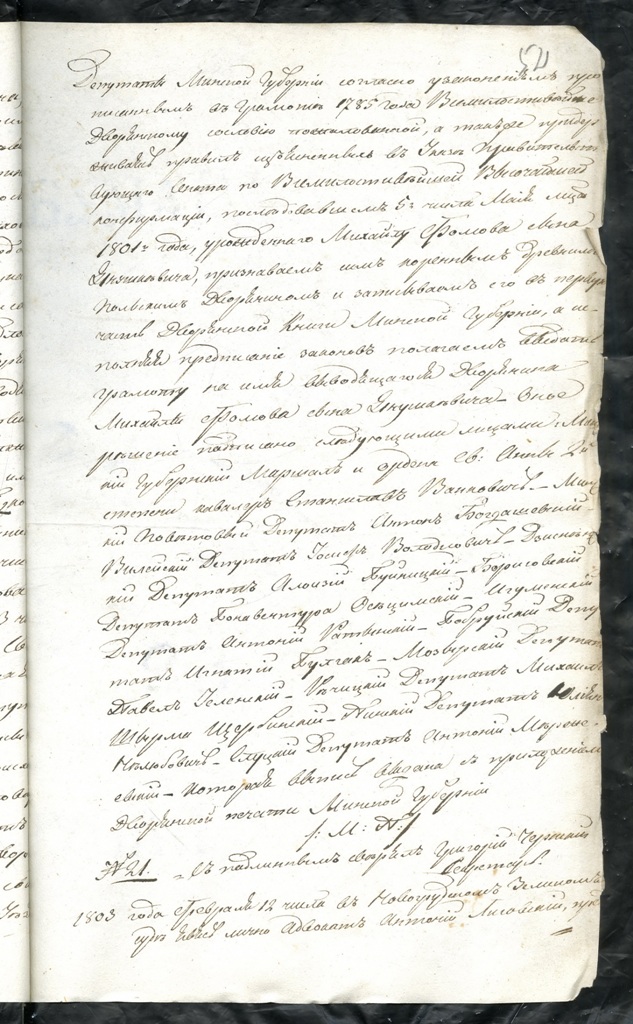 52
Депутаты Минской Губерніи согласно узаконеніямъ про-
писаннымъ въ Грамотѣ 1785 года Всемилостивѣйше
Дворянскому сословію пожалованной, а также придер-
живаясь правилъ изъясненныхъ въ Указѣ Правительств-
ующаго Сената по Всемилостивѣйшей Высочайшей
конфирмаціи, послѣдовавшемъ 5го числа Маія мца
1801го года, урожденнаго Михайлу Фомова сына
Янушкевича, признаваемъ имъ кореннымъ древнимъ
Польскимъ Дворяниномъ и записываемъ его въ первую
часть Дворянской Книги Минской Губерніи, а ис-
полняя предписаніе законовъ полагаемъ выдать
грамоту на имя выводящагося Дворянина
Михайлы Фомова сына Янушкевича – Оное
рѣшеніе подписано слѣдующими лицами: Мин-
кій Губернскій Маршалъ и ордена Св: Анны 2й
степени кавалеръ Станиславъ Ваньковичъ – Минс
кій Повѣтовый Депутатъ Антонъ Богдашевскій
Вилейскій Депутатъ Іосифъ Володковичъ – Дисненс
кій Депутатъ Алоизій Буйницкій – Борисовскій
Депутатъ Бонавентура – Игуменскій
Депутатъ Антоній Ратынскій – Бобруйскій Депу
татъ Игнатій Булгакъ – Мозырскій Депутатъ
Павелъ Еленскій – Рѣчицкій Депутатъ Михаилъ
Ширма Щербинскій – Пинскій Депутатъ
Нелюбовичъ – Слуцкій Депутатъ Антоній
евскій – которая выпись выдана съ приложеніемъ
Дворянской печати Минской Губерніи
/: М: П: /
№ 21. – Съ подлиннымъ свѣрялъ Григорій
Секретарь.
1803 года Февраля 12 числа въ Новогрудскомъ Земскомъ
судѣ явясь лично Адвокатъ Антоній Лисовскій, пред